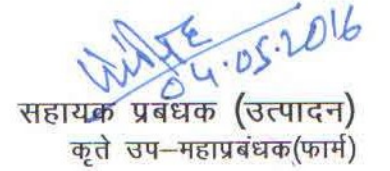 04.05.2016
सहायक प्रबंधक (उत्पादन)
कृते उप–महाप्रबंधक(फार्म)